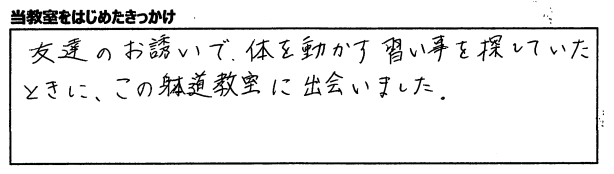 当教室をはじめたきっかけ
友達のお誘いで、体を動かす習い事を探していた
ときに、この躰道教室に出会いました。